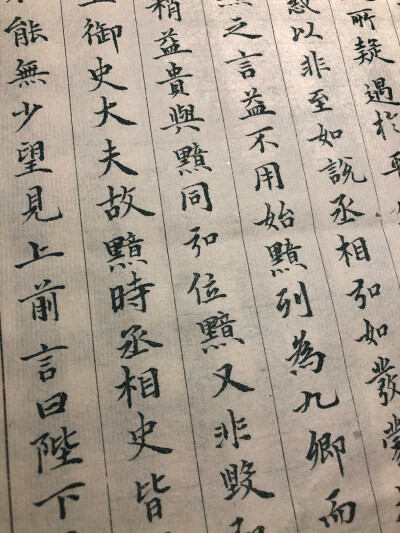 所疑過於
惑以非至如說丞相弘如發蒙
黯之言益不用始黯列為九卿而
稍益貴與黯同弘位黯又非毀
御史大夫故黯時丞相史皆
能無少望見上前言曰陛下